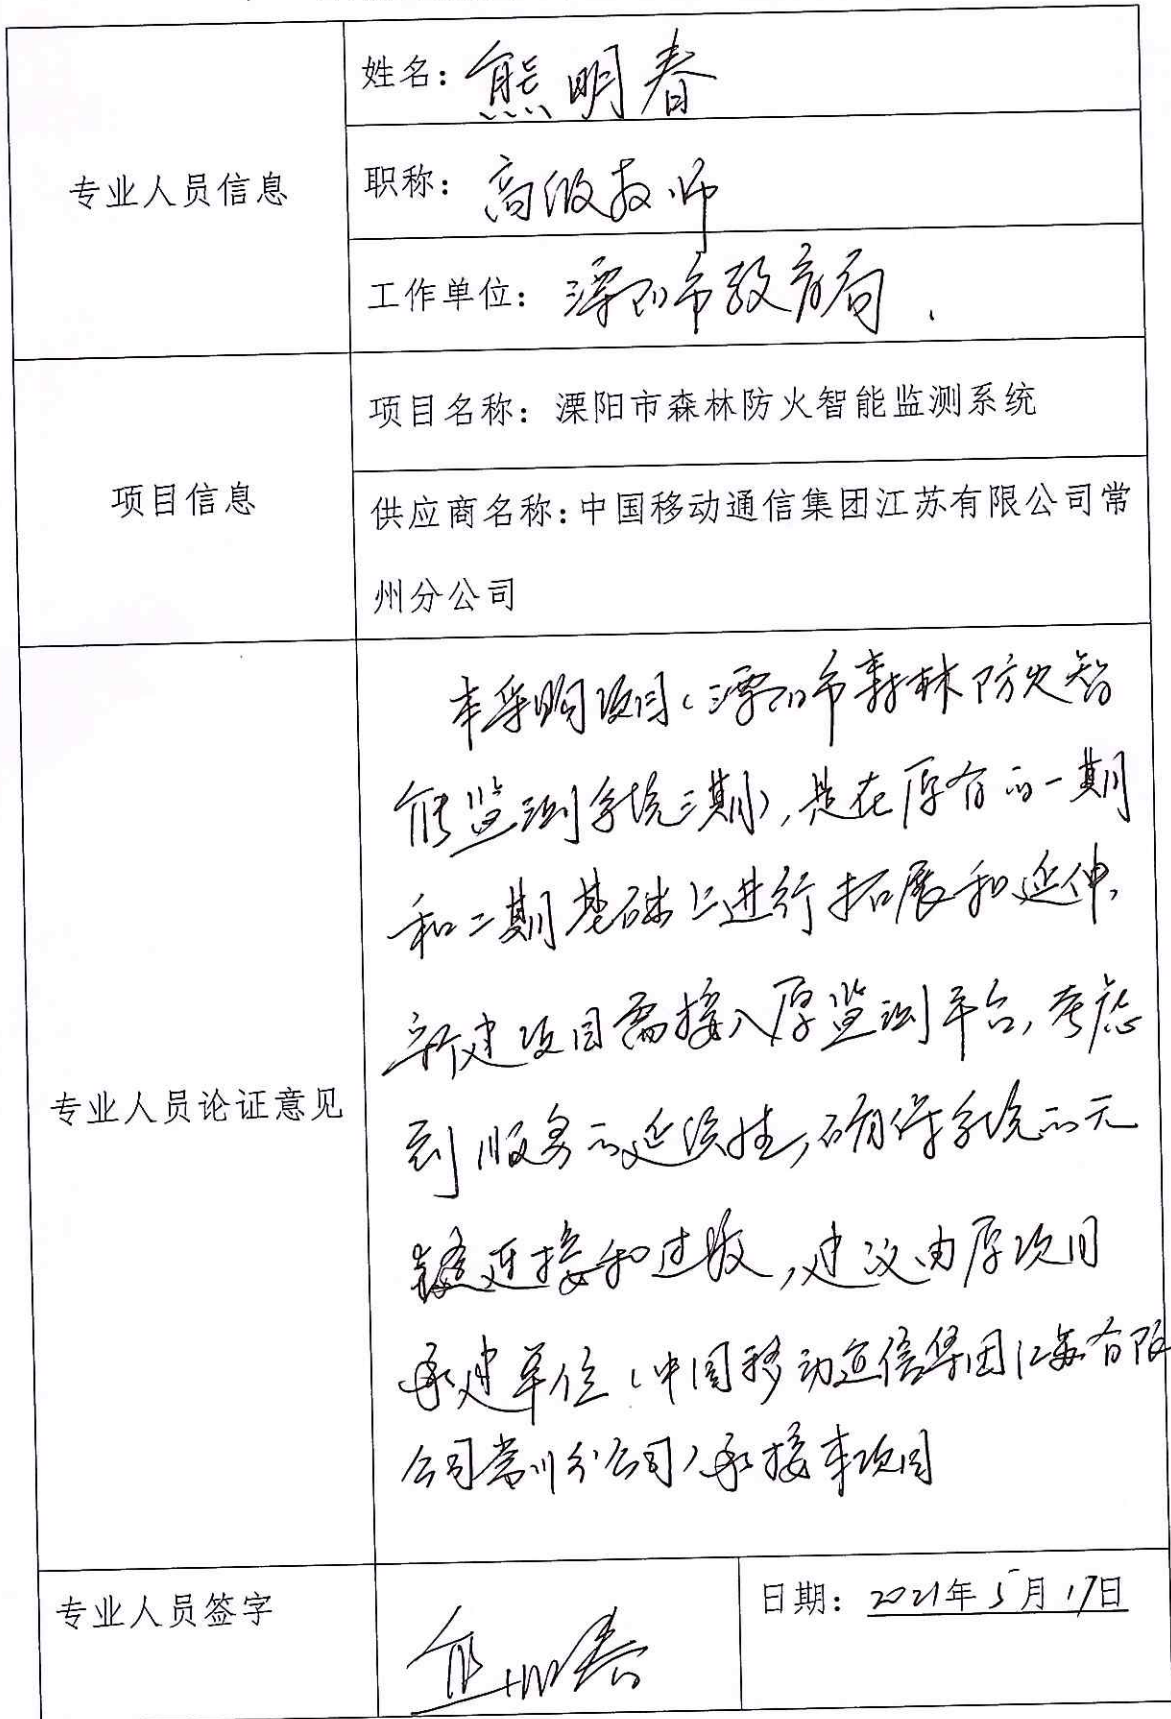 姓名：熊明春
专业人员信息
职称：高级教师
工作单位：溧阳市教育局.
项目名称：溧阳市森林防火智能监测系统
项目信息
供应商名称：中国移动通信集团江苏有限公司常
州分公司
本采购项目（溧阳市森林防火智
能监测系统三期），是在原有的一期
和二期基础上进行拓展和延伸，
新建项目需接入原监测平台，考虑
专业人员论证意见
到服务的延续性，确保系统的无
缝连接和过渡，建议由原项目
承建单位（中国移动通信集团江苏有限
公司常州分公司）承接本项目
专业人员签字
熊明春
日期：2021年5月17日